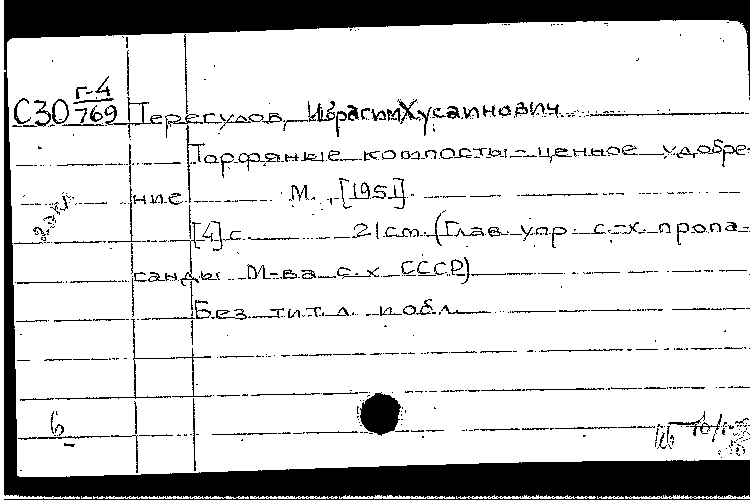 С30 Г-4/769 Терегулов, Ибрагим Хусаинович
Торфяные компосты - ценное удобре-
ние М., [1951].
[4] с. 21 см. (Глав. упр. с.-х. пропа-
ганды М-ва с. х. СССР)
Без тит. л. и обл.
2 экз.
6